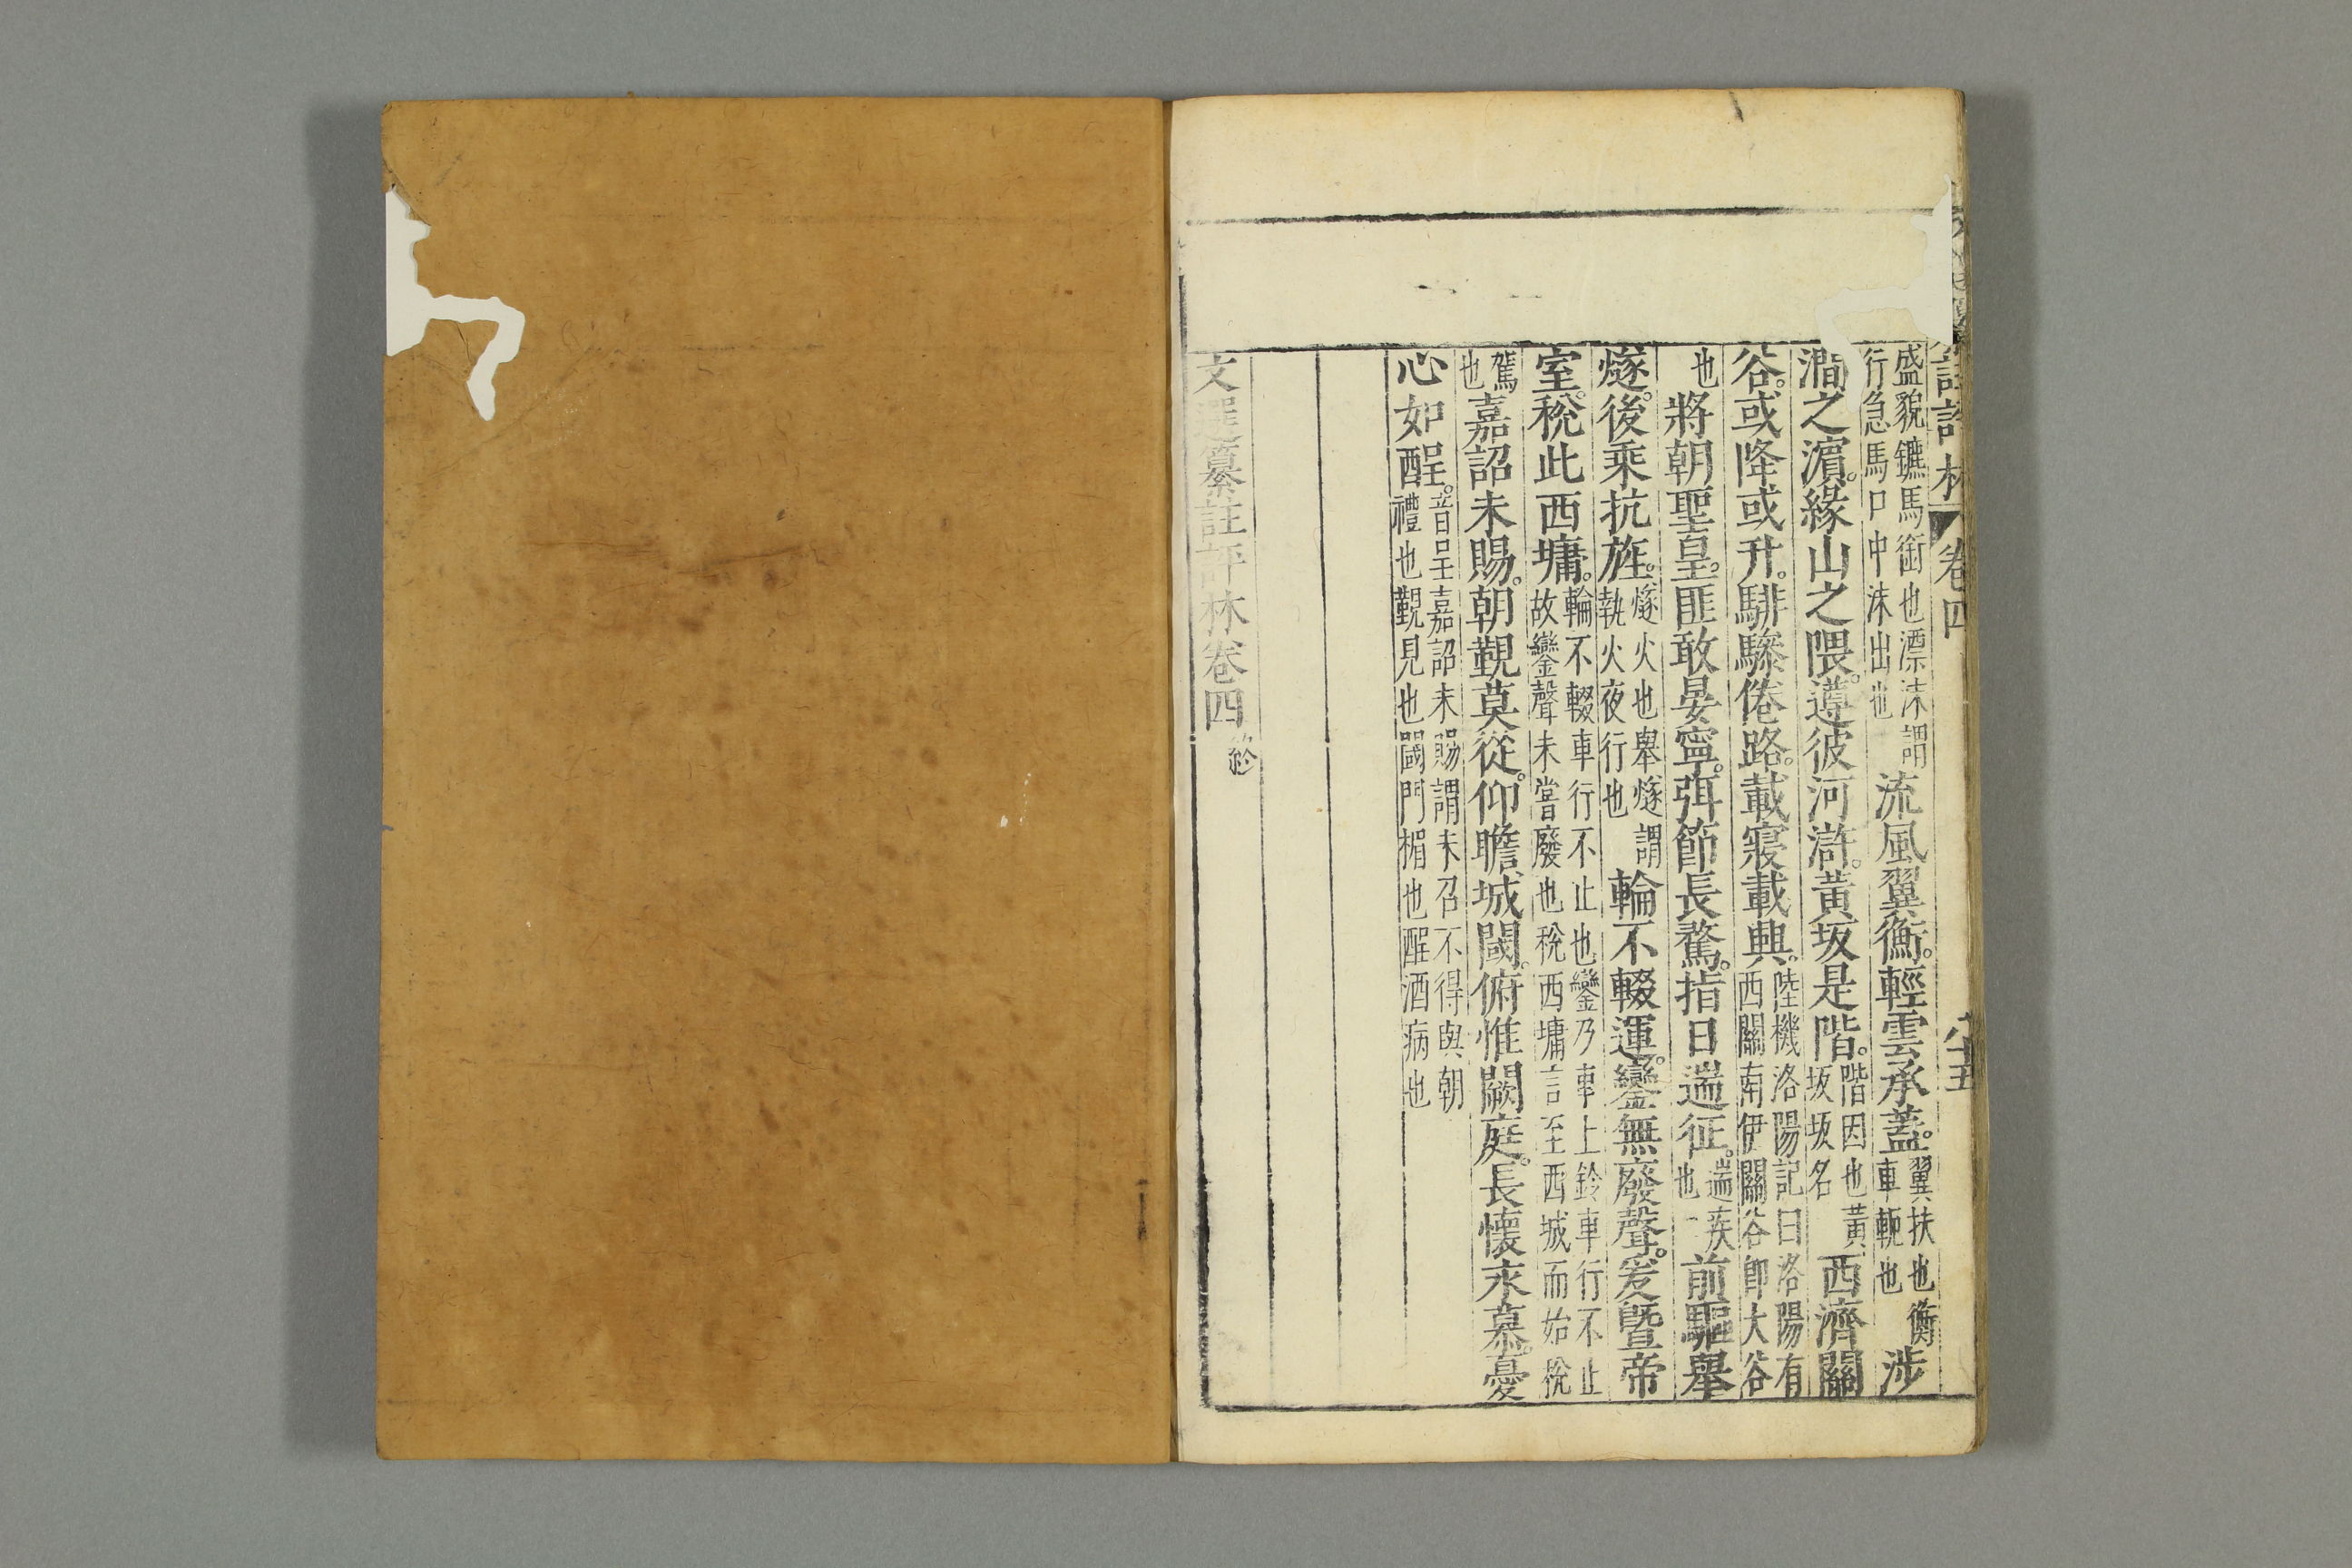 註評林 卷四 八十五
盛貌鑣馬銜也漂沫謂行急馬口中沫出也流風翼衡。輕雲承蓋。翼扶也衡車軛也涉
澗之濵。緣山之隈。遵彼河滸。黃坂是階。階因也黃坂坂名西濟關
谷。或降或升。騑驂倦路。載寢載興。陸機洛陽記曰洛陽有西關南伊關谷卽大谷
也將朝聖皇。匪敢晏寧。弭節長騖。指日遄征。遄疾也前驅舉
燧。後乘抗旌。燧火也舉燧謂執火夜行也輪不輟運。鑾無廢聲。爰曁帝
室。稅此西墉。輪不輟車行不止也鑾乃車上鈴車行不止故鑾聲未嘗廢也稅西墉言至西城而始稅
駕也嘉詔未賜。朝覲莫從。仰瞻城閾。俯惟闕庭。長懷永慕。憂
心如酲。音呈嘉詔未賜謂未召不得與朝禮也覲見也閾門楣也酲酒病也
文選纂註評林卷四終